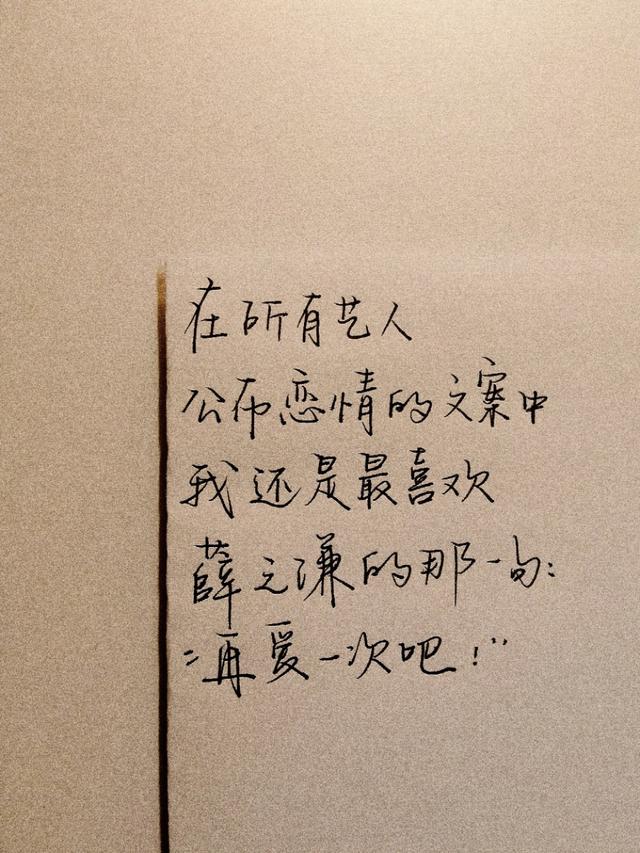 在所有艺人
公布恋情的文案中
我还是最喜欢
薛之谦的那一句：
“再爱一次吧！”